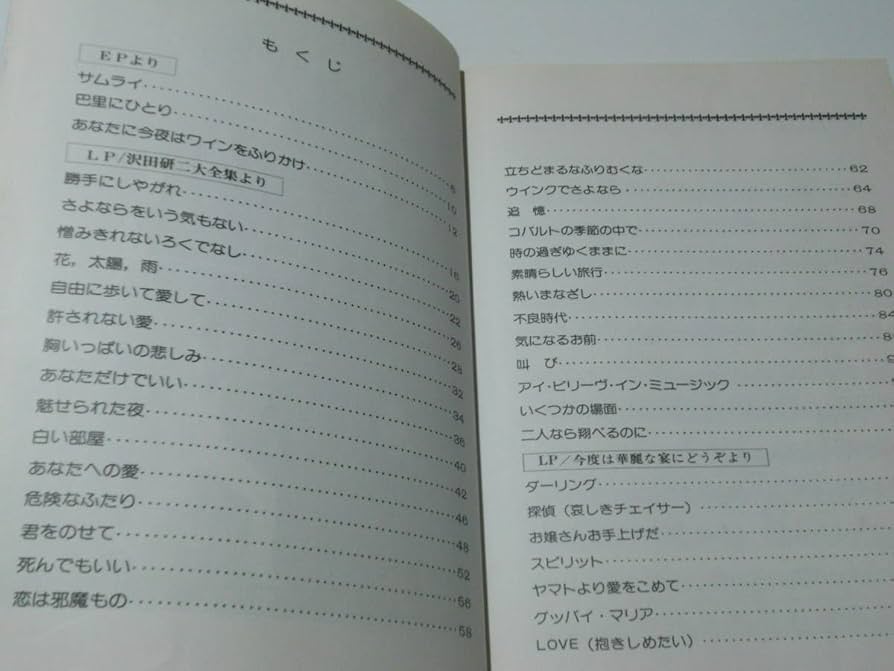 もくじ
EPより
サムライ 6
巴里にひとり 10
あなたに今夜はワインをふりかけ 12
LP/沢田研二大全集より
勝手にしやがれ 16
さよならをいう気もない 20
憎みきれないろくでなし 22
花，太陽，雨 26
自由に歩いて愛して 28
許されない愛 32
胸いっぱいの悲しみ 34
あなただけでいい 36
魅せられた夜 40
白い部屋 42
あなたへの愛 46
危険なふたり 48
君をのせて 52
死んでもいい 56
恋は邪魔もの 58
立ちどまるなふりむくな 62
ウインクでさよなら 64
追憶 68
コバルトの季節の中で 70
時の過ぎゆくままに 74
素晴らしい旅行 76
熱いまなざし 80
不良時代 84
気になるお前
叫び
アイ・ビリーヴ・イン・ミュージック
いくつかの場面
二人なら翔べるのに
LP/今度は華麗な宴にどうぞより
ダーリング
探偵（哀しきチェイサー）
お嬢さんお手上げだ
スピリット
ヤマトより愛をこめて
グッバイ・マリア
LOVE（抱きしめたい）